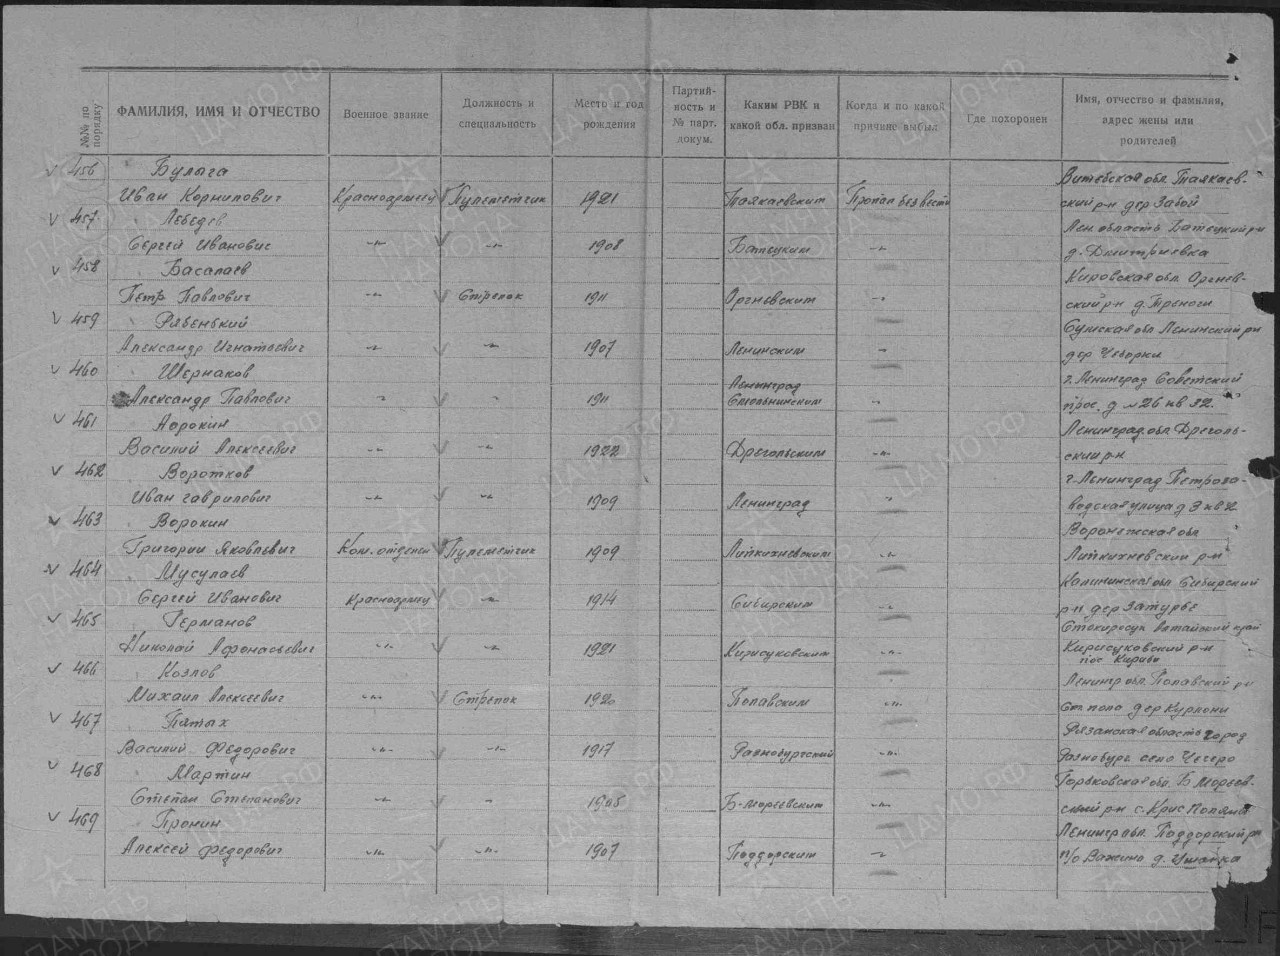 №№ по порядку ФАМИЛИЯ, ИМЯ И ОТЧЕСТВО Военное звание Должность и специальность Место и год рождения Партийность и № парт. докум. Каким РВК и какой обл. призван Когда и по какой причине выбыл Где похоронен Имя, отчество и фамилия, адрес жены или родителей
456 Булыга Витебская обл.
Иван Корнилович Красноармеец Пулеметчик 1921 Пропал без вести ский р-н дер Забой
457 Лебедев Лен. область Батецкий р-н
Сергей Иванович -"- -"- 1908 Батецким -"- д. Дмитриевка
458 Басалаев Кировская обл.
Петр Павлович -"- Стрелок 1911 -"- ский р-н д.
459 Рябенький Сумская обл Ленинский р-н
Александр Игнатьевич -"- -"- 1907 Ленинским -"- дер
460 Шернаков г. Ленинград Советский
Александр Павлович -"- -"- 1911 Ленинград Смольнинским -"- прос. д № 26 кв 32.
461 Ленинград. обл Дреголь-
Василий Алексеевич -"- -"- 1922 Дрегольским -"- ский р-н
462 Воротков г. Ленинград Петроза-
Иван Гаврилович -"- -"- 1909 Ленинград -"- водская улица д 3 кв
463 Ворокин Воронежская обл
Григорий Яковлевич Ком. отделен Пулеметчик 1909 -"- р-н
464 Мусулаев Калининская обл Сибирский
Сергей Иванович Красноармеец -"- 1914 Сибирским -"- р-н дер Затурье
465 Германов Алтайский край
Николай Афонасьевич -"- -"- 1921 Кирисуковским -"- Кирисуковский р-н
пос
466 Козлов Ленингр обл. Полавский р-н
Михаил Алексеевич -"- Стрелок 1920 Полавским -"- ст пола дер
467 Пятых Рязанская область город
Василий Федорович -"- -"- 1917 Раненбургский -"- Раненбург село
468 Мартин Горьковская обл. Б Мореев-
Степан Степанович -"- -"- Б-Мореевским -"- ский р-н с.
469 Пронин Ленингр обл. Поддорский р-н
Алексей Федорович -"- -"- 1907 Поддорским -"- п/о Важино д. Ушайка
ПАМЯТЬ НАРОДА
ЦАМО.РФ